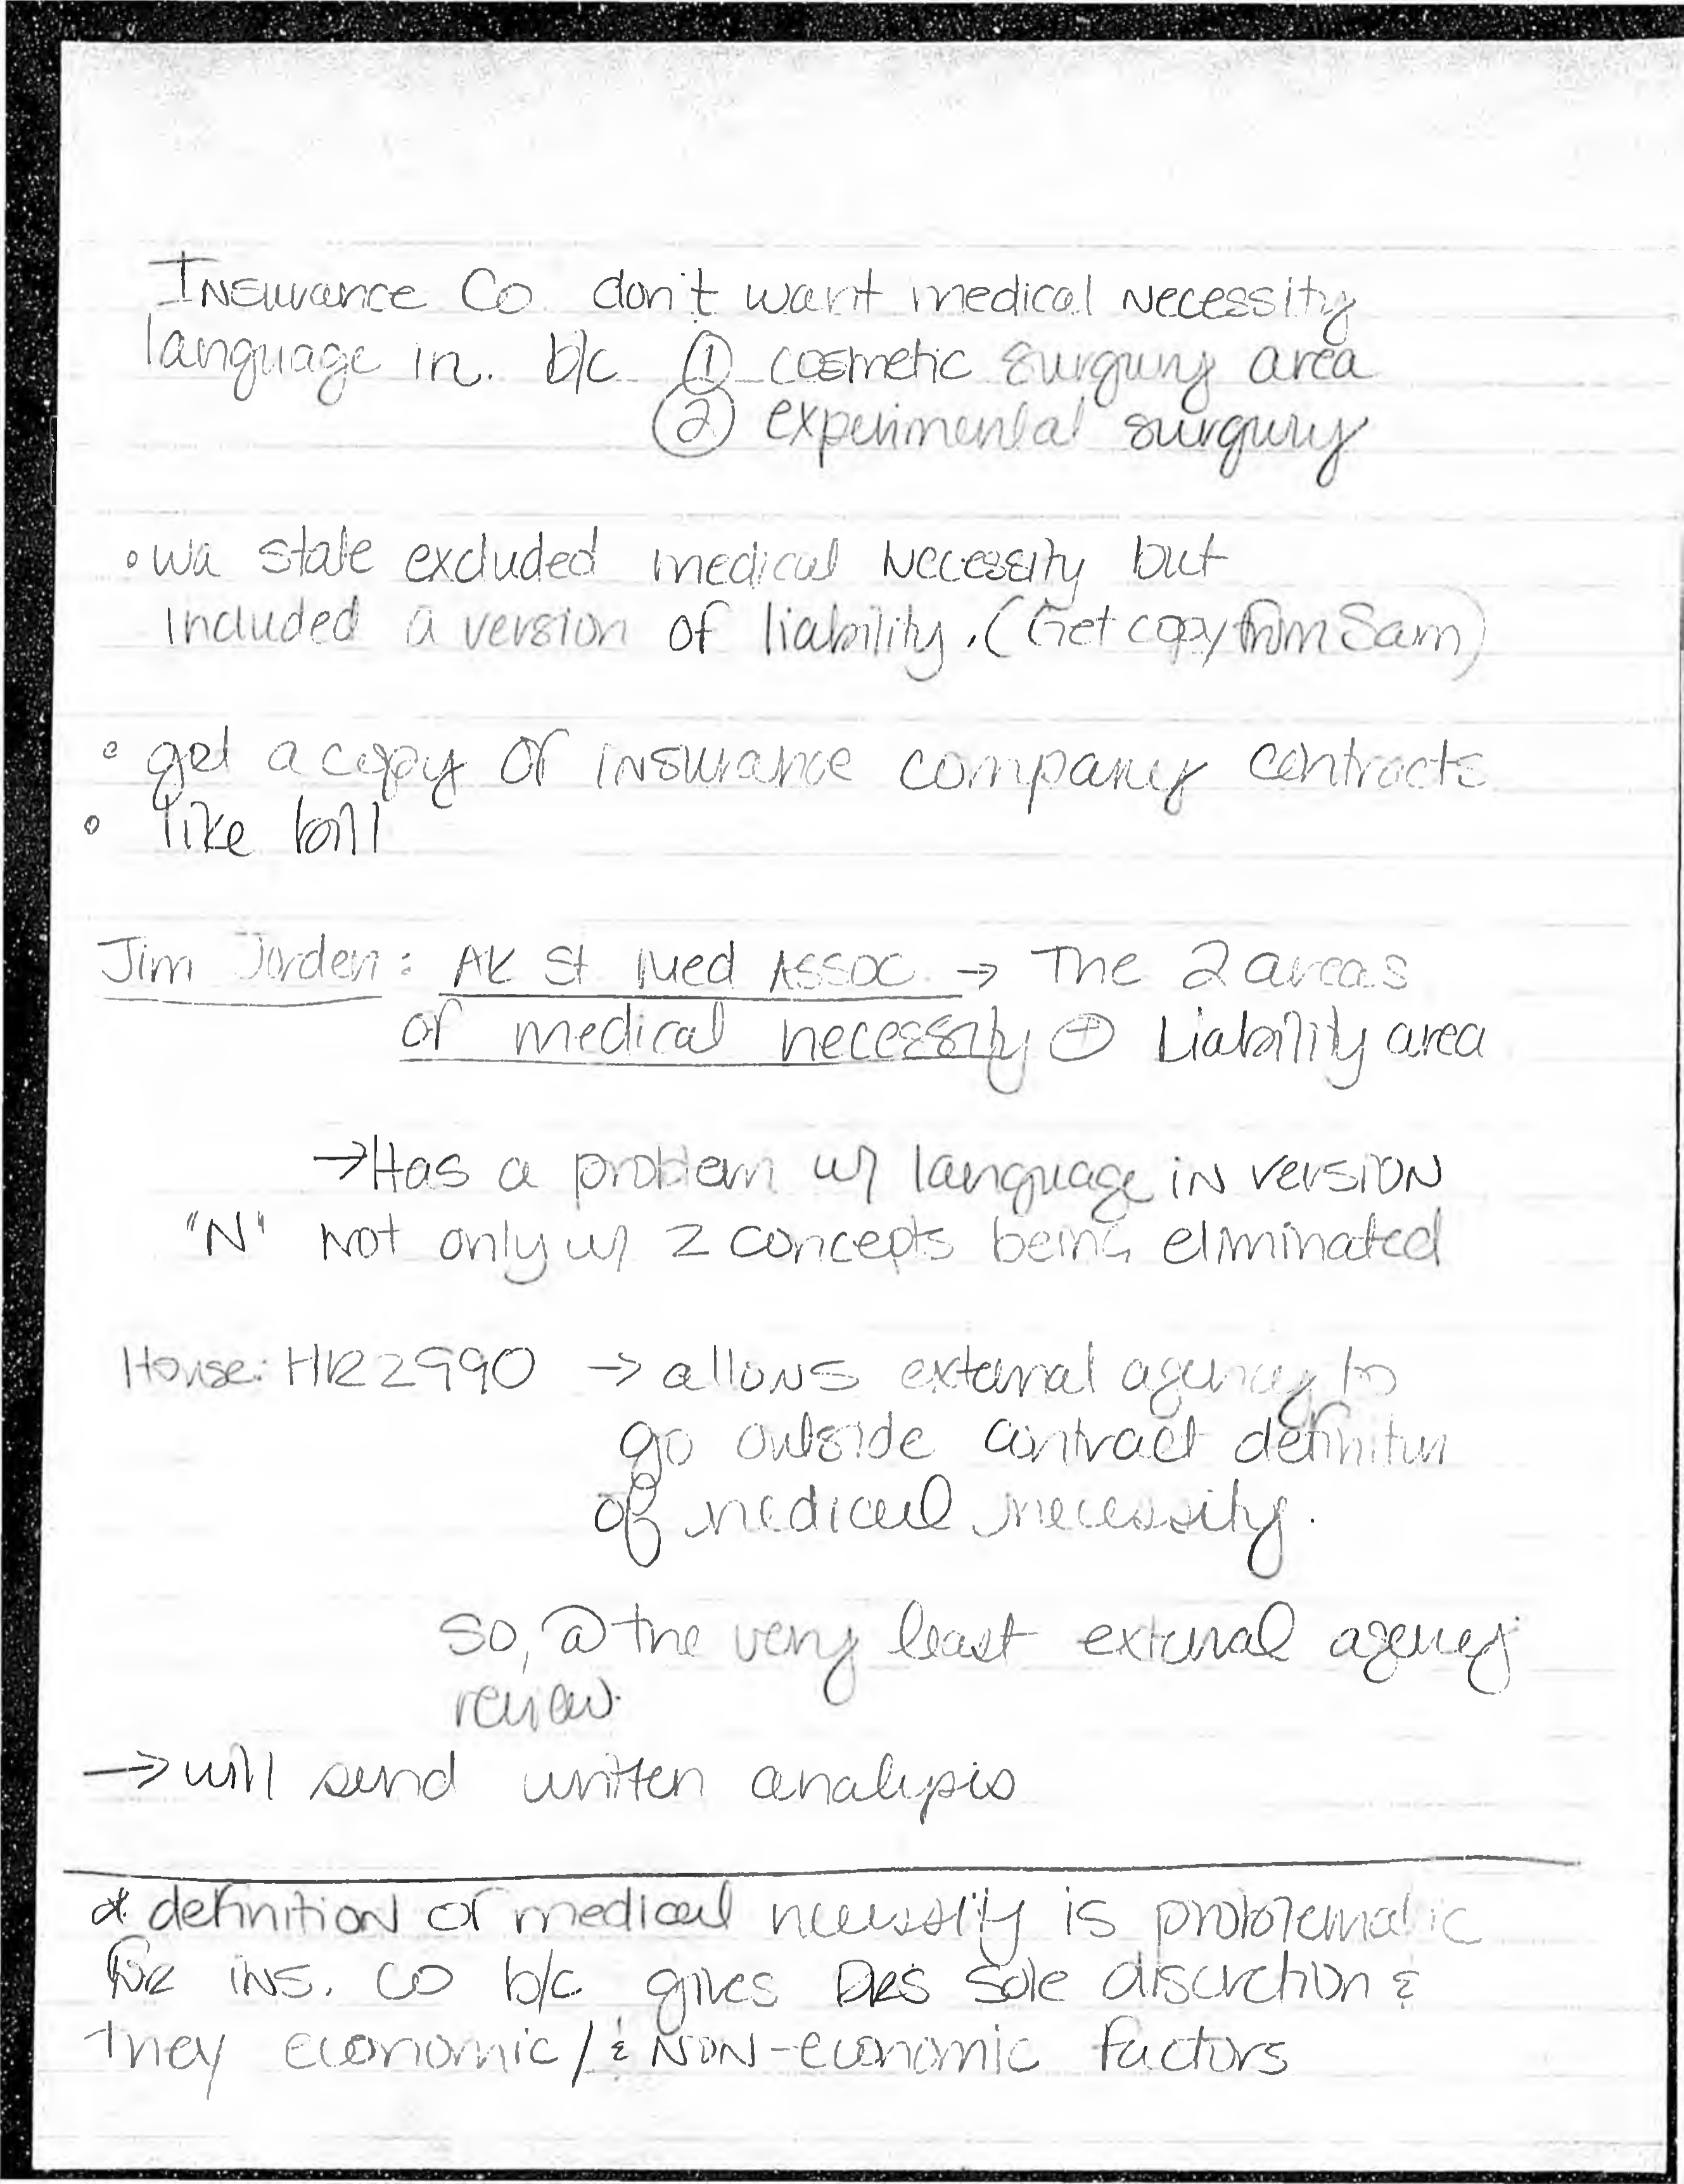 Insurance Co don't want medical necessity
language in. b/c ① cosmetic surgury area
② experimental surgury
• wa state excluded medical necessity but
included a version of liability. (Get copy from Sam)
• get a copy of insurance company contracts
• like bill
Jim Jorden: AK St Med Assoc. → The 2 areas
of medical necessity ⊕ Liability area
→ Has a problem w/ language in version
"N" not only w/ 2 concepts being eliminated
House: HR2990 → allows external agency to
go outside contract definition
of medical necessity.
So, @ the very least external agency
review.
→ will send written analysis
* definition of medical necessity is problematic
for ins. co b/c gives DRs sole discretion &
they economic/& non-economic factors